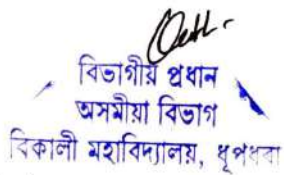 বিভাগীয় প্ৰধান
অসমীয়া বিভাগ
বিকালী মহাবিদ্যালয়, ধূপধৰা